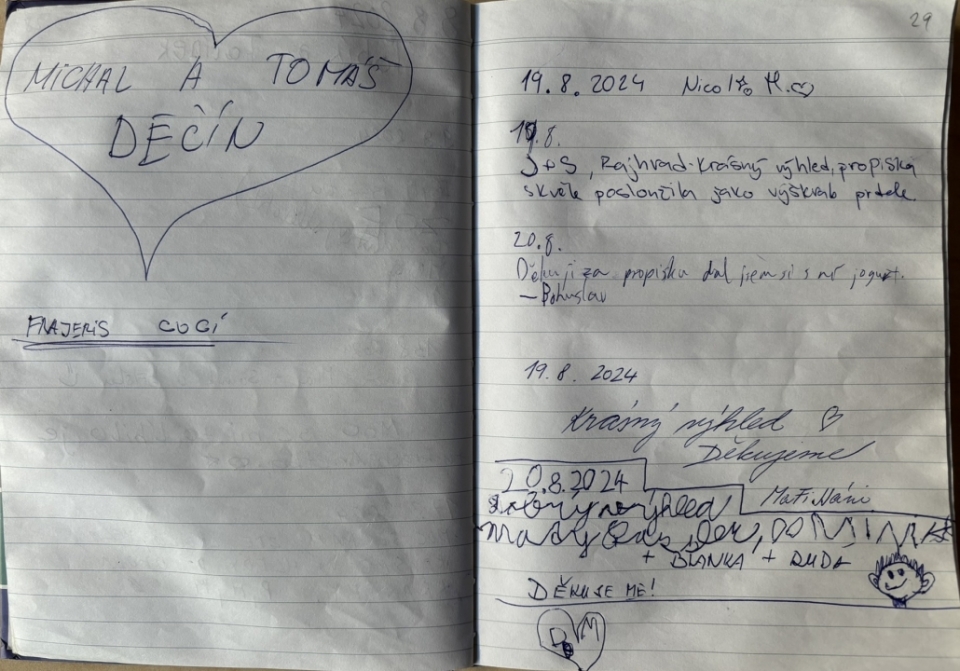 MICHAL A TOMÁŠ
DĚČÍN
FRAJERIS
29
19.8.2024 H.
19.8.
J+S, Rajhrad-krásný výhled, propiska
skvěle posloužila jako výškrab prdele
20.8.
Děkuji za propisku dal jsem si s ní jogurt.
– Bohuslav
19.8. 2024
Krásný výhled
Děkujeme
20.8.2024
výhled
+ BLANKA + RUDA
DĚKUJEME!
D M